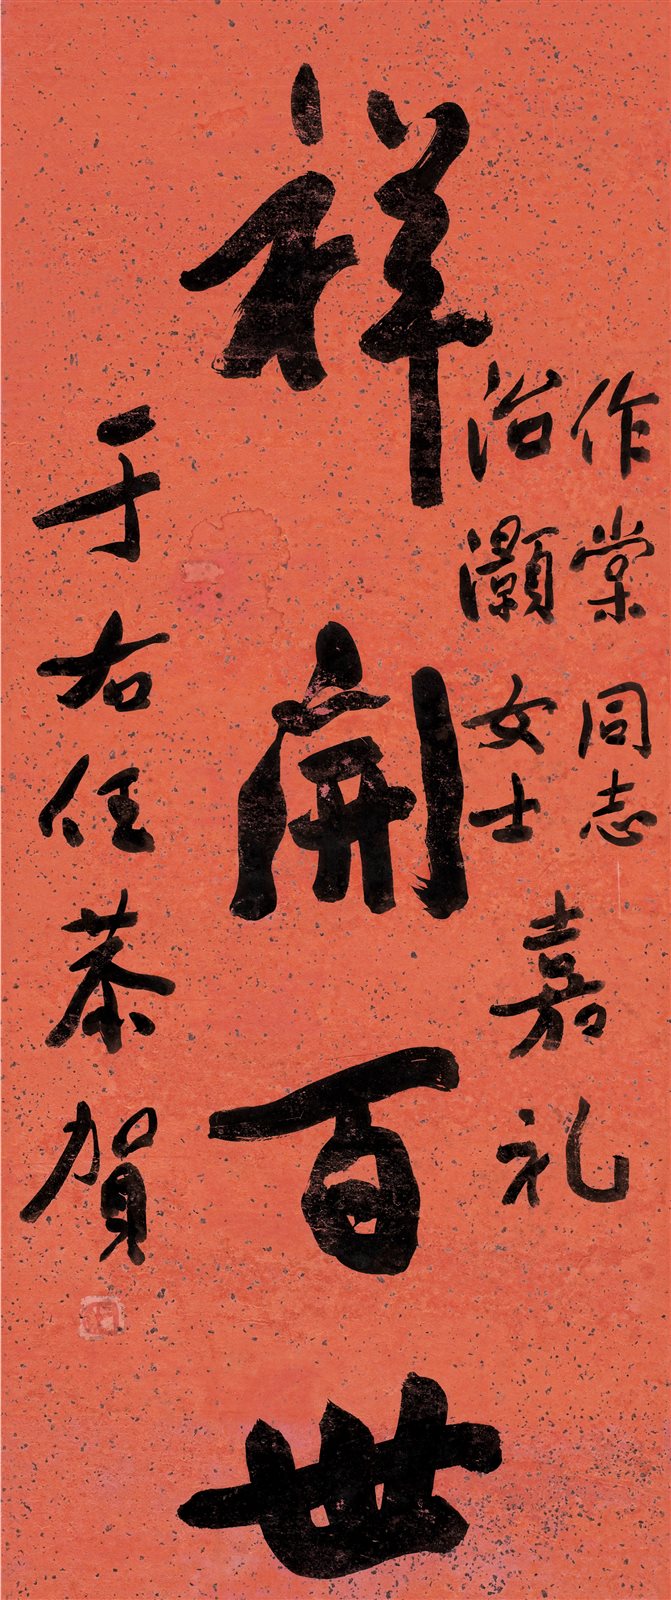 作棠同志
治灝女士
嘉礼
祥開百世
于右任恭賀